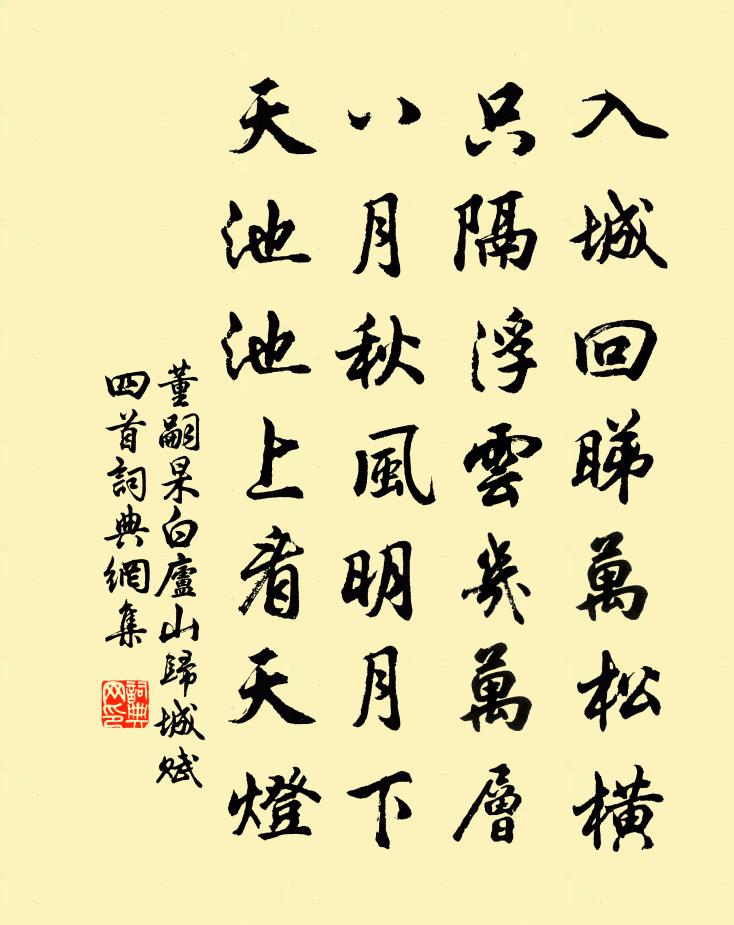 入城回睇萬松橫
只隔浮雲幾萬層
八月秋風明月下
天池池上看天燈
董嗣杲白廬山歸城賦
四首詞典網集
詞典
网印